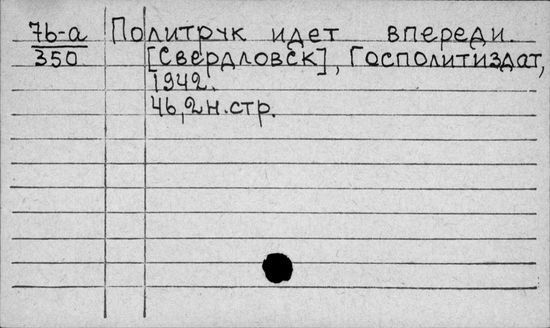 76-а
350
Политрук идет впереди.
[Свердловск], Госполитиздат,
1942.
46,2н.стр.